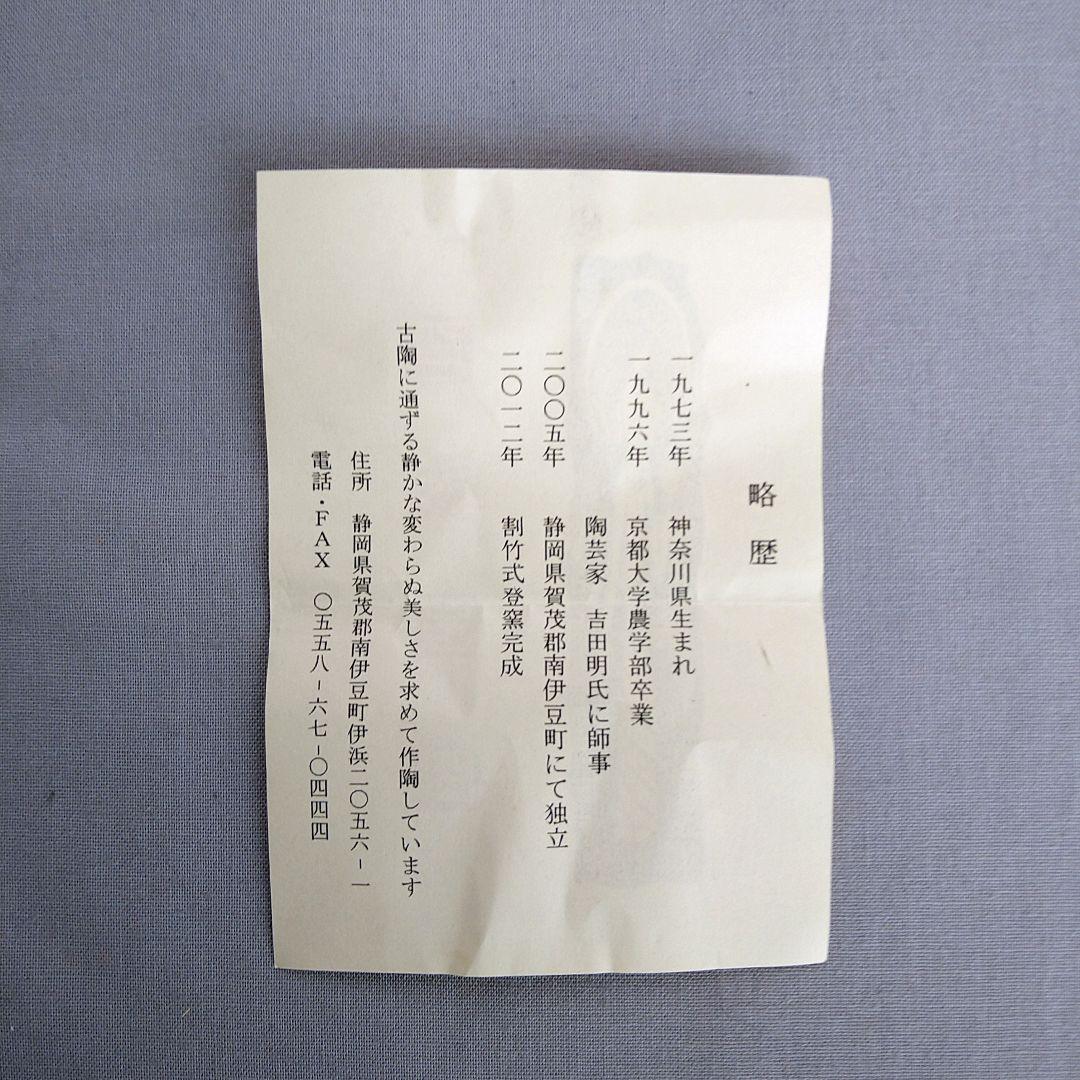 略歴
一九七三年 神奈川県生まれ
一九九六年 京都大学農学部卒業
陶芸家 吉田明氏に師事
二〇〇五年 静岡県賀茂郡南伊豆町にて独立
二〇一二年 割竹式登窯完成
古陶に通ずる静かな変わらぬ美しさを求めて作陶しています
住所 静岡県賀茂郡南伊豆町伊浜二〇五六-一
電話・FAX 〇五五八-六七-〇四四四